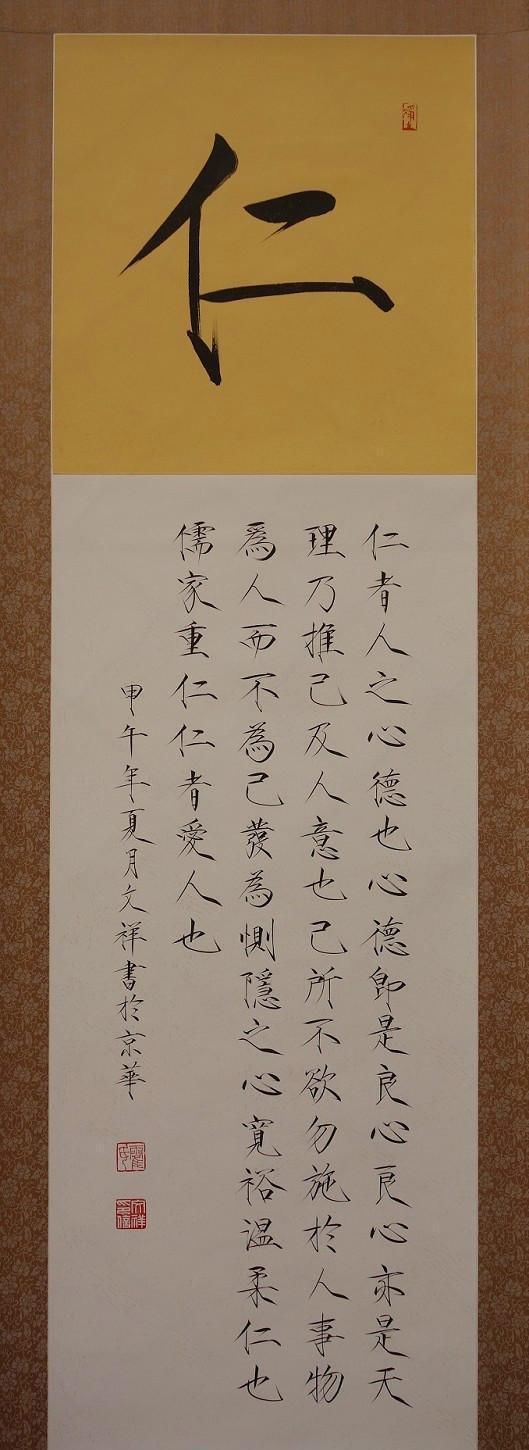 仁
仁者人之心德也心德即是良心良心亦是天
理乃推己及人意也己所不欲勿施於人事物
爲人而不為己發為惻隱之心寬裕溫柔仁也
儒家重仁仁者愛人也
甲午年夏月文祥書於京華